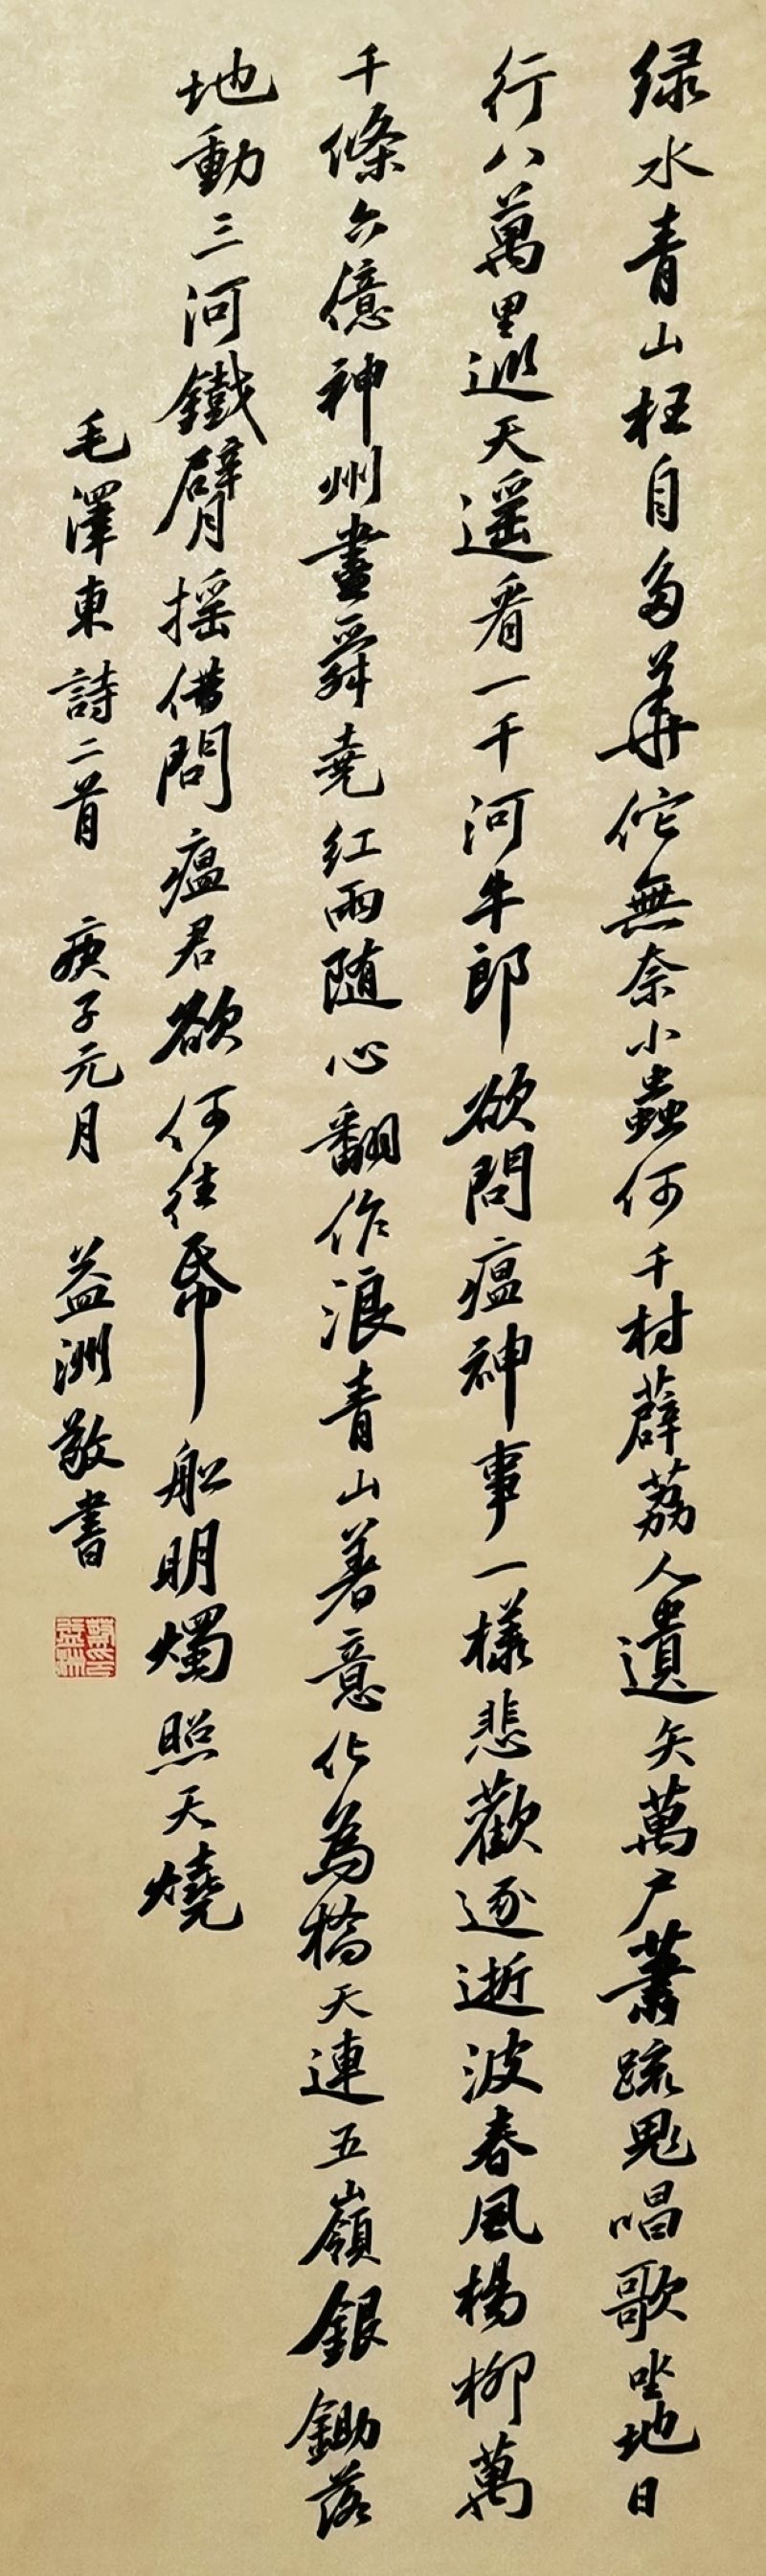 绿水青山枉自多華佗無奈小蟲何千村薜荔人遺矢萬户蕭疏鬼唱歌坐地日
行八萬里巡天遥看一千河牛郎欲問瘟神事一樣悲歡逐逝波春風楊柳萬
千條六億神州盡舜堯红雨随心翻作浪青山著意化為橋天連五嶺銀鋤落
地動三河鐵臂摇借問瘟君欲何往帋船明燭照天燒
毛澤東詩二首 庚子元月 益洲敬書